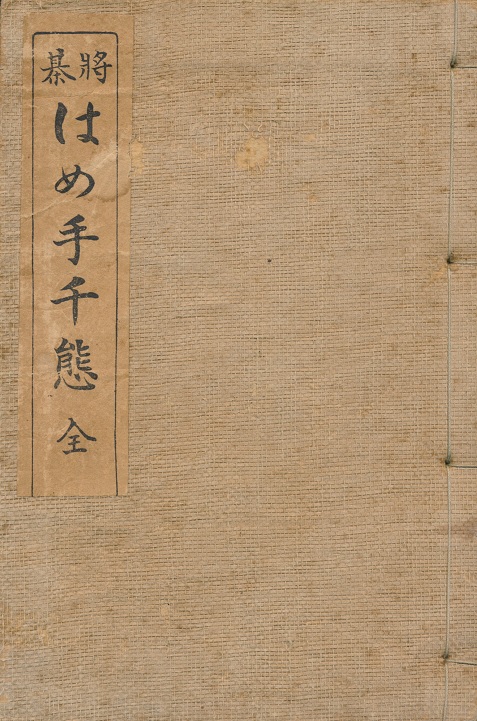 將棊
はめ手千態 全